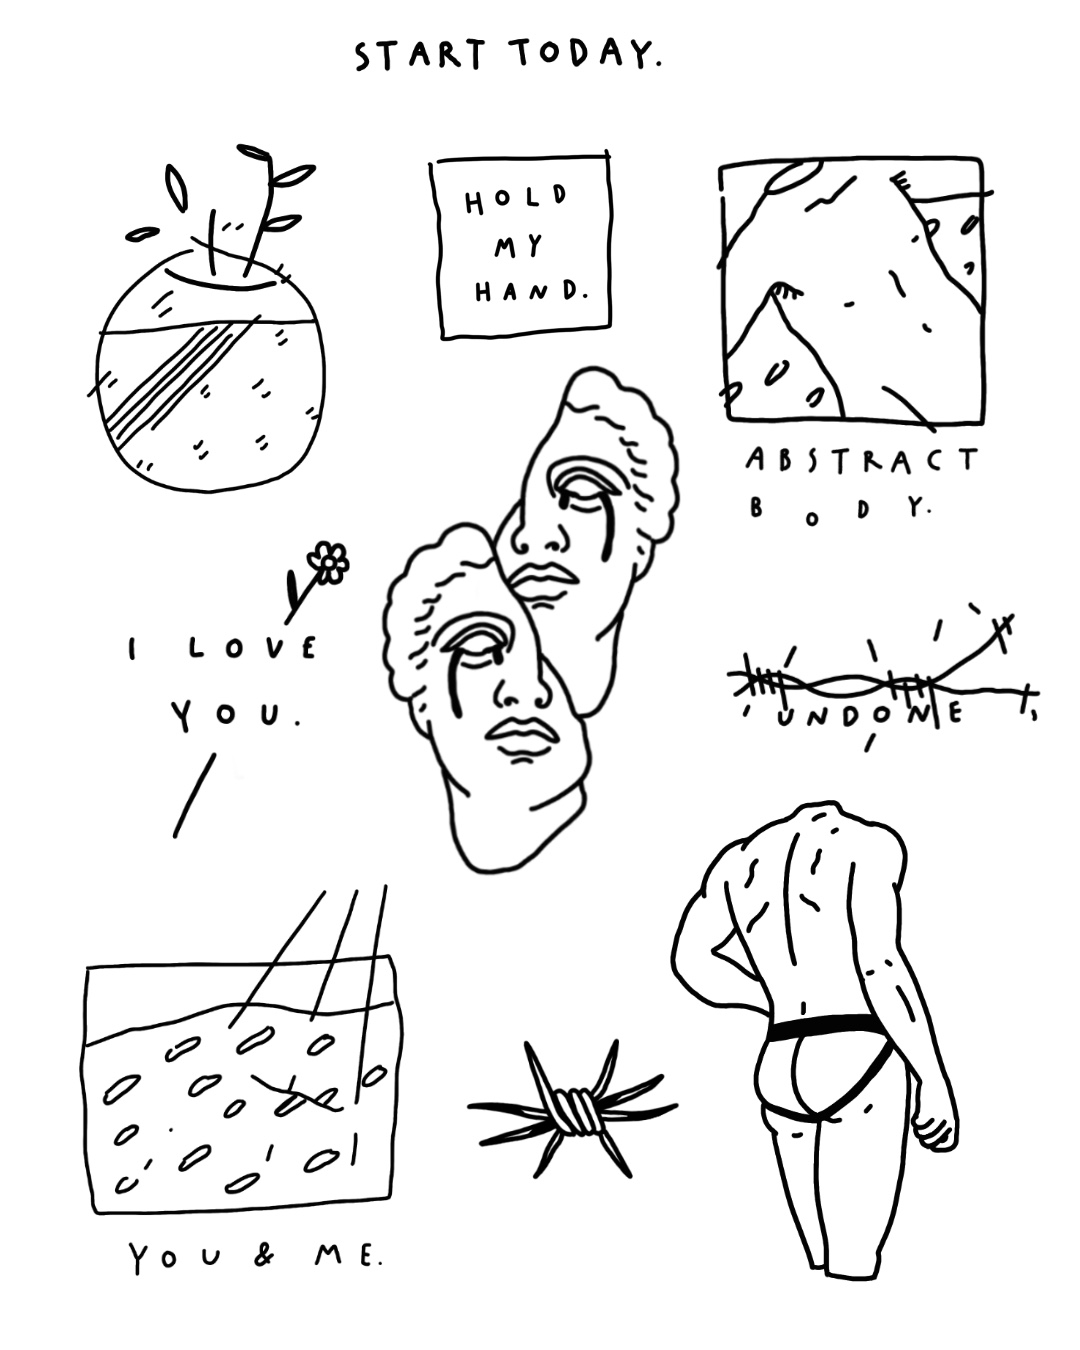 START TODAY.
HOLD
MY
HAND.
ABSTRACT
BODY.
I LOVE
YOU.
UNDONE
YOU & ME.